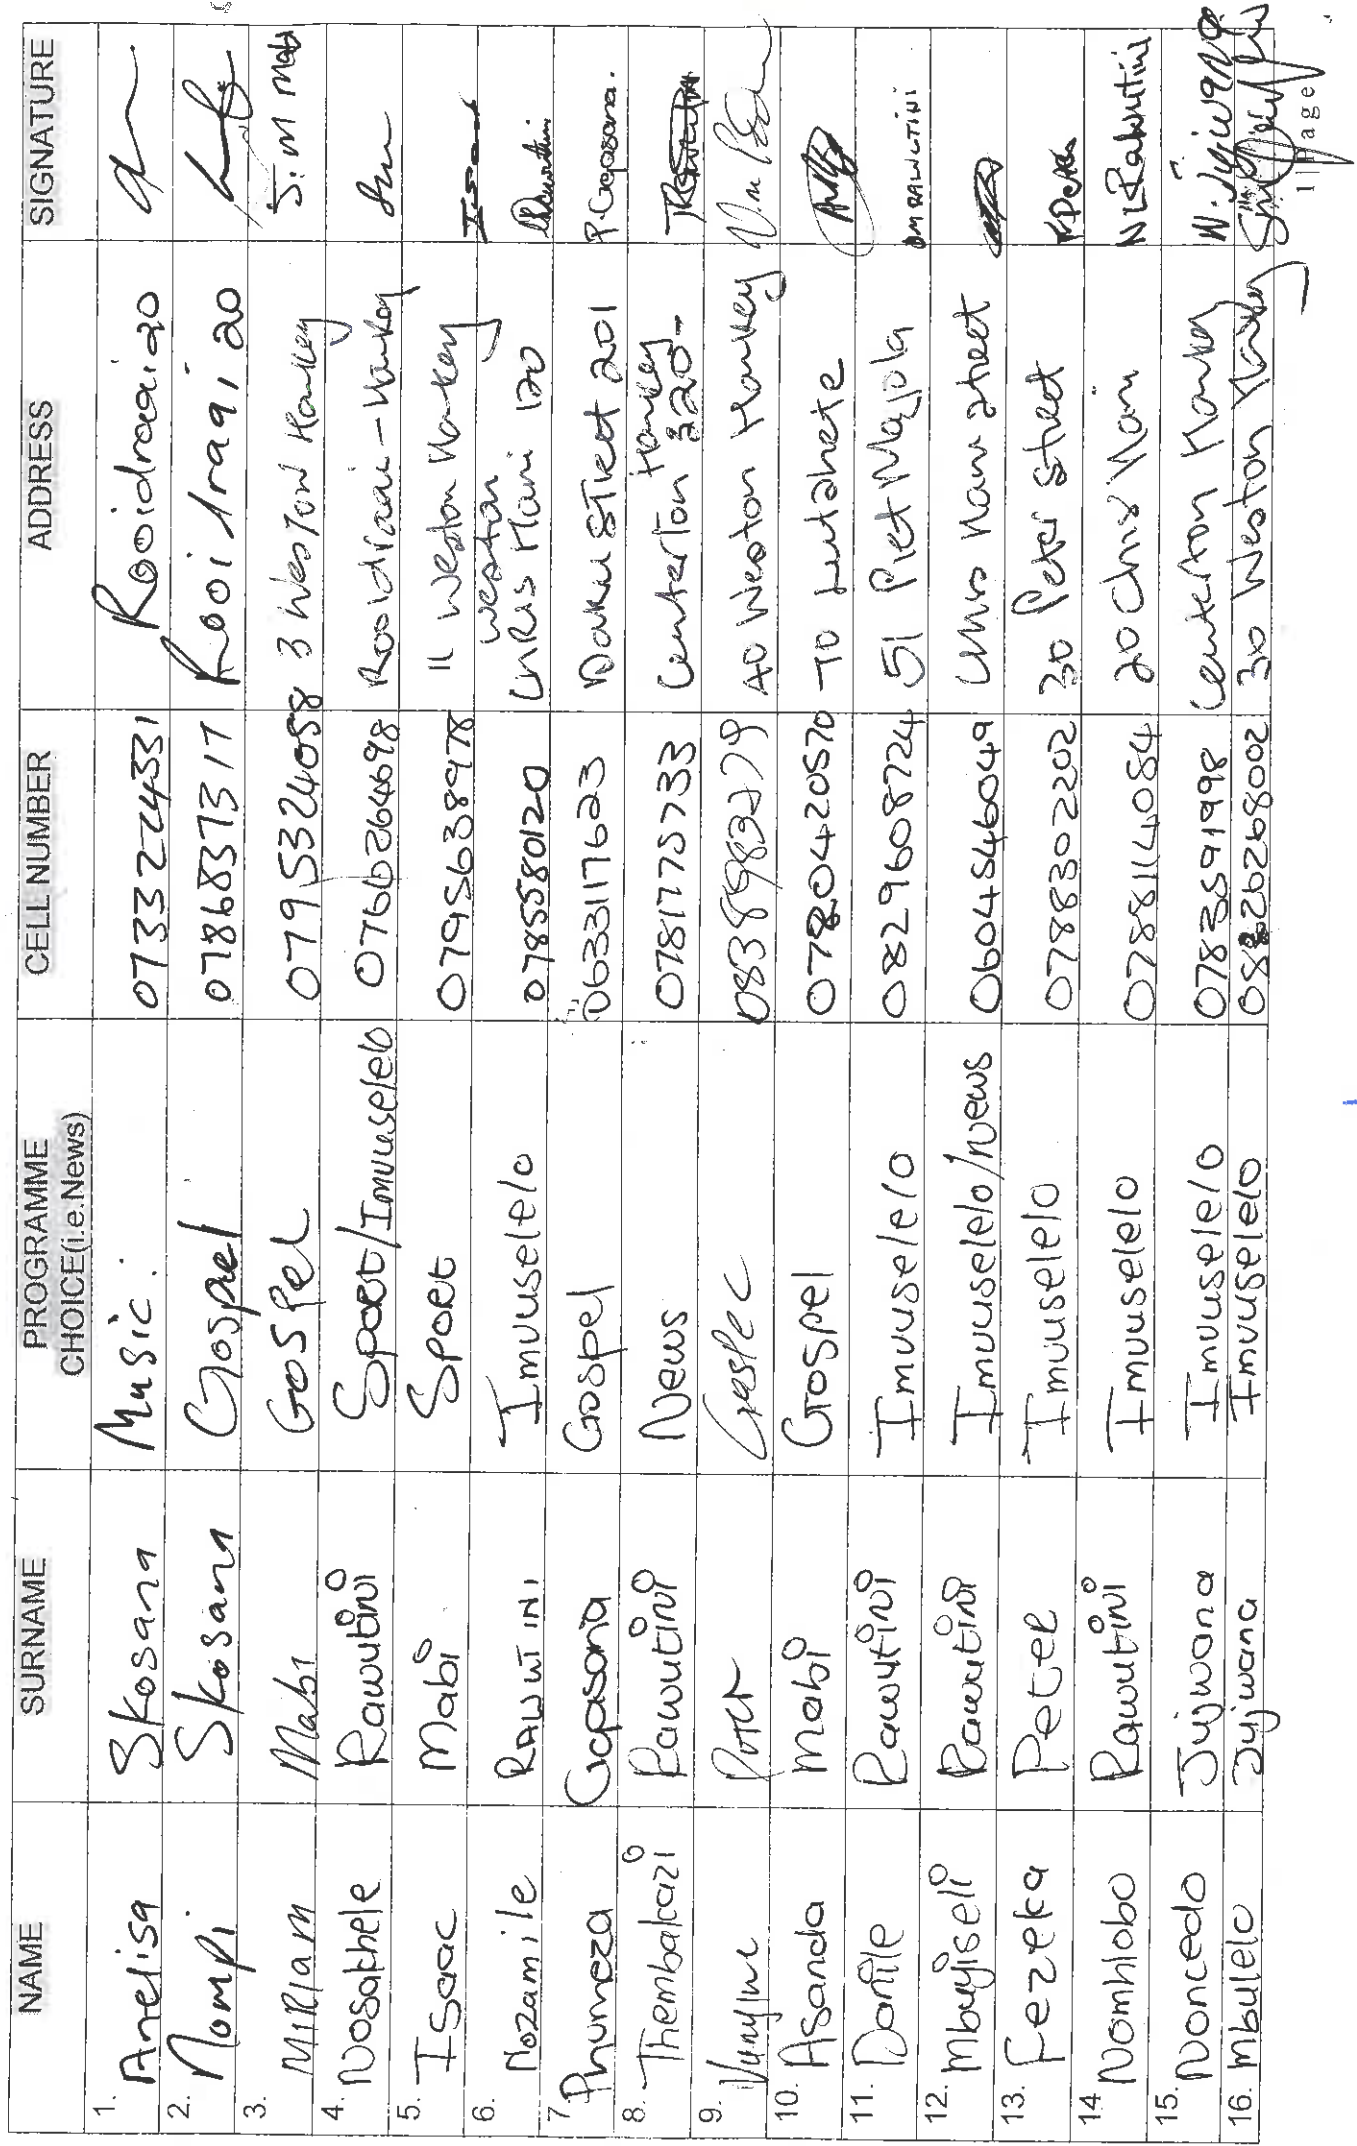 NAME SURNAME PROGRAMME CHOICE(i.e.News) CELL NUMBER ADDRESS SIGNATURE
1. Anelisa Skosana Music. 0733224331 Rooidraai 20
2. Nompi Skosana Gospel 0786837317 Rooidraai 20
3. MIRIAM Mabi GOSPEL 0795324058 3 Weston Hankey J.M Mabi
4. Nosakhele Rawutini Sport/Imvuselelo 0766264698 Rooidraai-Hankey
5. Isaac Mabi SPORT 0795638978 11 Weston Hankey Isaac
6. Nozamile RAWUTINI Imvuselelo 0785580120 Weston Chris Hani 120
7. Phumeza Gcapsana Gospel 0633117623 Daku Street 201 P.Gcapsana.
8. Thembakazi Rawutini News 0781775733 Centerton Hankey 220
9. Gospel 0838983279 40 Weston Hankey
10. Asanda Mabi Gospel 0780420570
11. Danile Rawutini Imvuselelo 0829608724 51 Piet Majola DM RAWUTINI
12. Mbuyiseli Rawutini Imvuselelo/News 0604546049 Chris Hani street
13. Fezeka Peter Imvuselelo 0788302202 30 Peter street F.Peter
14. Nomhlobo Rawutini Imvuselelo 0788114084 20 Chris Hani N.L Rawutini
15. Noncedo Jujwana Imvuselelo 0783591998 Centerton Hankey N.Jujwana
16. Mbulelo Jujwana Imvuselelo 30 Weston Hankey
1 | Page